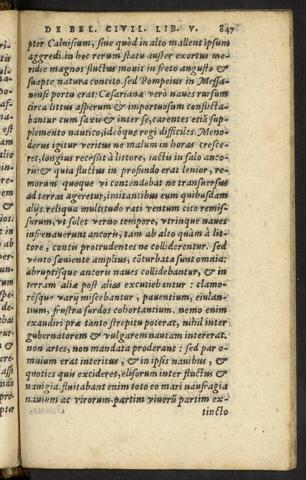 DE BEL. CIVIL. LIB. V. 847
pter Caluisium, siue quòd in alto mallent ipsum
aggredi. in hoc rerum statu auster exortus me-
ridie magnos fluctus mouit in freto angusto &
suapte natura concito. sed Pompeius in Messa-
nensi portu erat: Cæsarianæ verò naues rursum
circa littus asperum & importuosum conflicta-
bantur cum saxis & inter se, carentes etiã sup-
plemento nautico, ideóque regi difficiles. Meno-
dorus igitur veritus ne malum in horas cresce-
ret, longius recessit à littore, iactis in salo anco-
ris: & quia fluctus in profundo erat lenior, re-
morum quoque vi contendebat ne transuersus
ad terras ageretur, imitantibus eum quibusdam
alijs. reliqua multitudo rati ventum cito remis-
surum, vt solet verno tempore, vtrinque naues
infrenauerunt ancoris, tam ab alto quàm à lit-
tore, contis prudentes ne colliderentur. sed
vento sæuiente amplius, cõturbata sunt omnia:
abruptisque ancoris naues collidebantur, & in
terram aliæ post alias excutiebantur : clamo-
résque varij miscebantur, pauentium, eiulan-
tium, frustra surdos cohortantium. nemo enim
exaudiri præ tanto strepitu poterat, nihil inter
gubernatorem & vulgarem nautam intererat.
non artes, non mandata proderant : sed par o-
mnium erat interitus, & in ipsis nauibus, &
quoties qui excideret, elisorum inter fluctus &
nauigia. fluitabant enim toto eo mari naufragia
nauium ac virorum partim viuorũ partim ex-
tincto